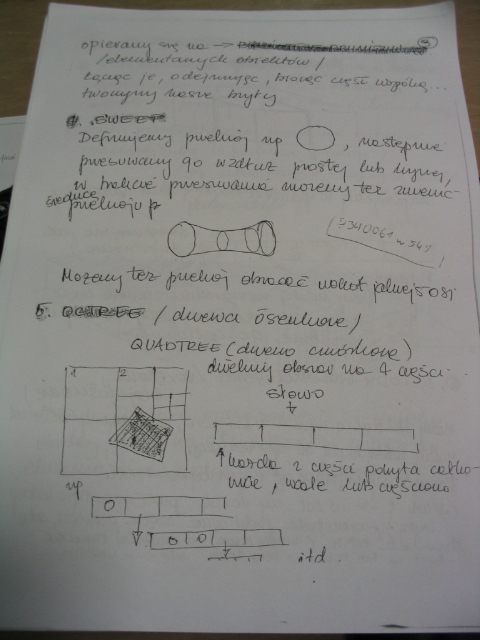 opieramy się na →
/elementarnych obiektów/
łącząc je, odejmując, biorąc część wspólną...
tworzymy nasze bryły
4. SWEEP
Definiujemy przekrój np , następnie
przesuwamy go wzdłuż prostej lub krzywej,
w trakcie przesuwania możemy też zmienić
średnicę
przekroju
Możemy też przekrój obracać wokół jednej osi
5. OCTREE /drzewa ósemkowe/
QUADTREE (drzewo czwórkowe)
dzielimy obszar na 4 części.
1 2
słowo
każda z części pokryta całko-
wicie, wcale lub częściowo
np
0
0 0
itd.